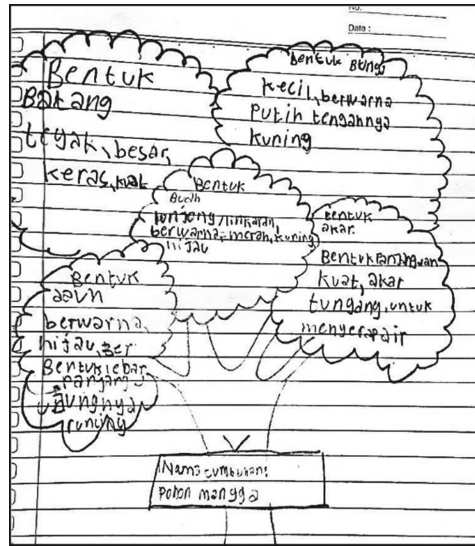 No:
Date:
Bentuk
Batang
tegak, besar,
keras, kuat
Bentuk Bunga
kecil, berwarna
putih tengahnya
kuning
Bentuk
Buah
lonjong/lingkaran,
berwarna = merah, kuning,
hijau
Bentuk
akar
Bentuk panjang dan
kuat, akar
tungang, untuk
menyerapair
Bentuk
daun
berwarna
hijau, ber
Bentuk lebar,
panjang,
ujungnya
runcing
Nama tumbuhan:
Pohon mangga